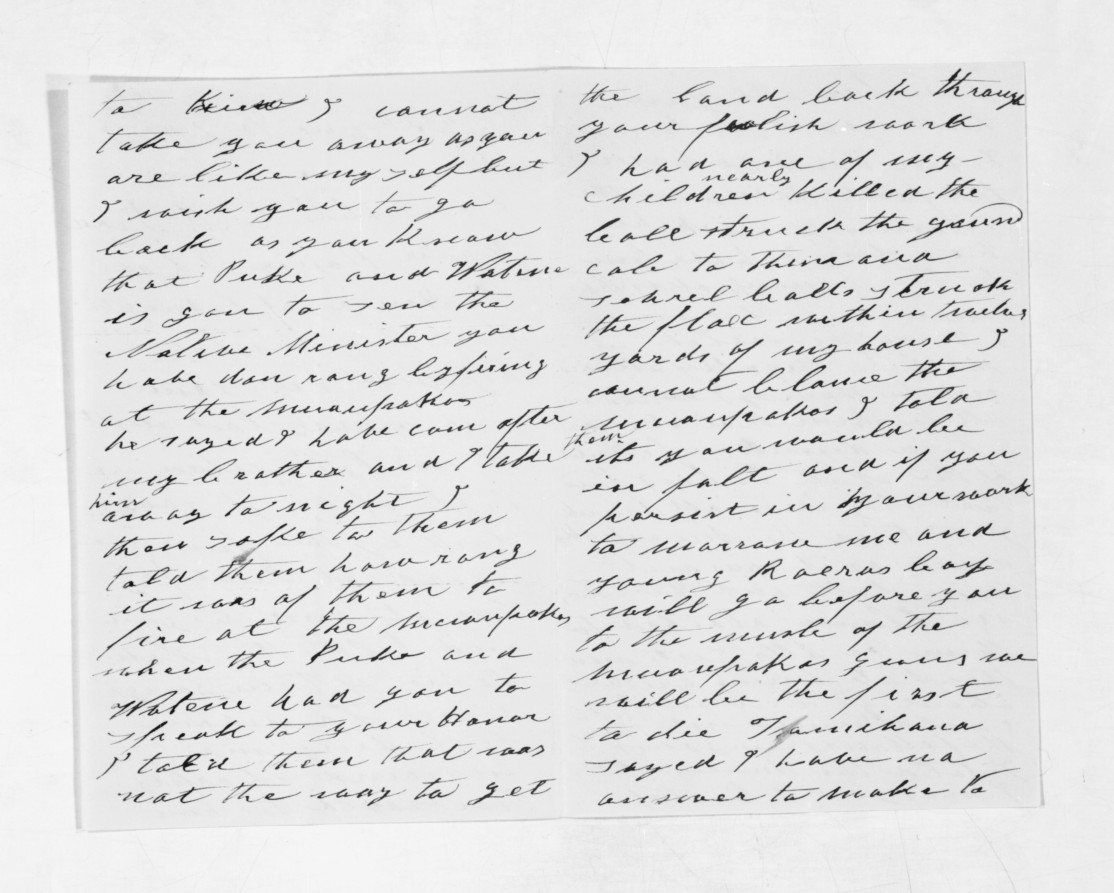 to him I cannot
take you away as you
are like my self but
I wish you to go
back as you Know
that Puke and Watene
is gon to sen the
Native Minister you
have don rong by firing
at the muaupokos
he sayed I have com after
my brother and I take
him
away to night I
then spke to them
told them how rong
it was of them to
fire at the muaupokos
when the Puke and
Watene had gon to
speak to your Honor
I told them that was
not the way to get
the land back through
your foolish work
I had one of my
nearly
children Killed the
ball struck the groun
cole to them and
sevrel balls struck
the flax within twelve
yards of my house I
cannot blame the
muaupokos I told
them
its you would be
in falt and if you
persist in your work
to morrow me and
young Roeras boy
will go before you
to the musk of the
muaupokos guns we
will be the first
to die Tamihana
sayed I have no
answer to make to